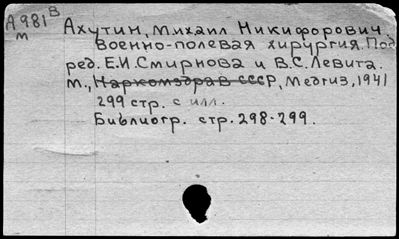 А981 В
м
Ахутин, Михаил Никифорович
Военно-полевая хирургия. Под
ред. Е.И. Смирнова и В.С. Левита.
М., Наркомздрав СССР, Медгиз, 1941
299 стр. с илл.
Библиогр. стр. 298-299.